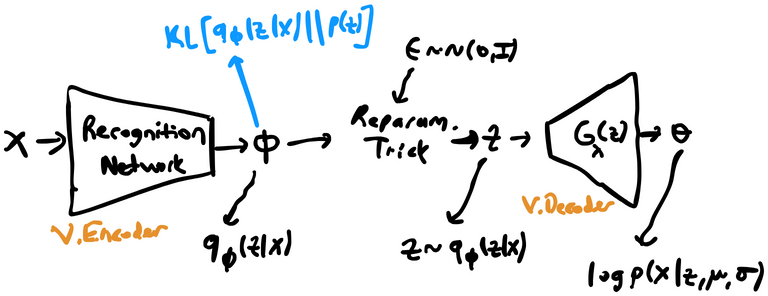 KL[qϕ(z|x)||p(z)]
ϵ~N(0,I)
X
Recognition
Network
ϕ
Reparam.
Trick
z
G_λ(z)
θ
V.Encoder
V.Decoder
qϕ(z|x)
z~qϕ(z|x)
log p(x|z,μ,σ)